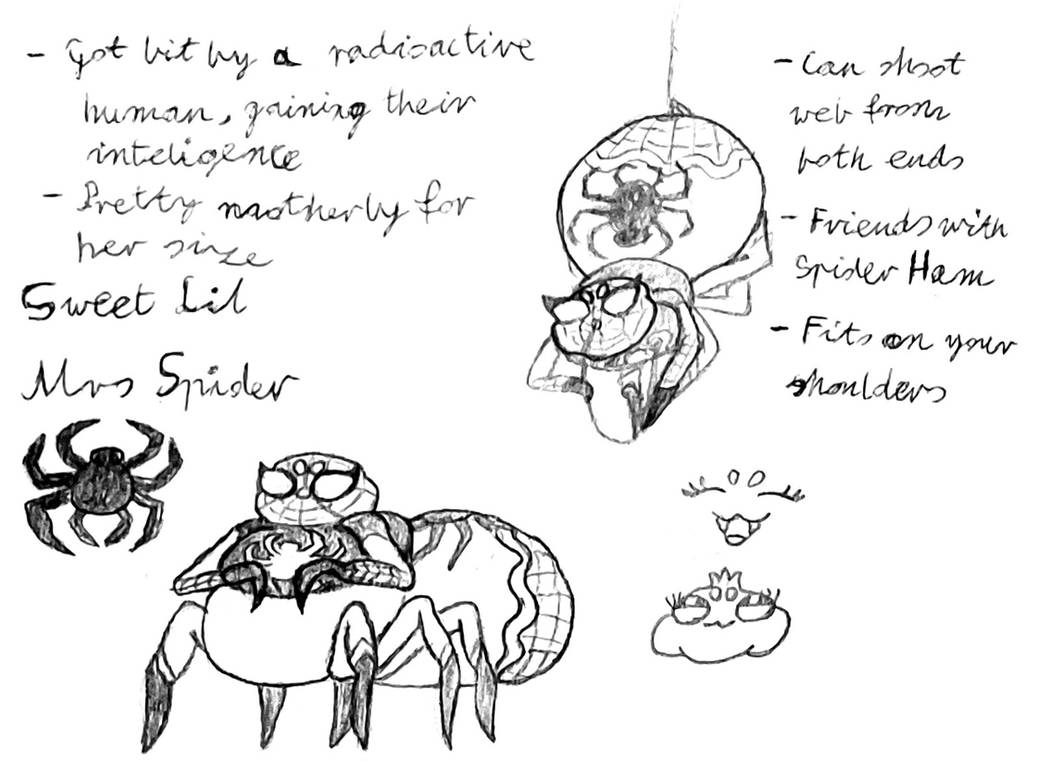 - Got bit by a radioactive
human, gaining their
inteligence
- Pretty motherly for
her size
Sweet Lil
Mrs Spider
- Can shoot
web from
both ends
- Friends with
Spider Ham
- Fits on your
shoulders